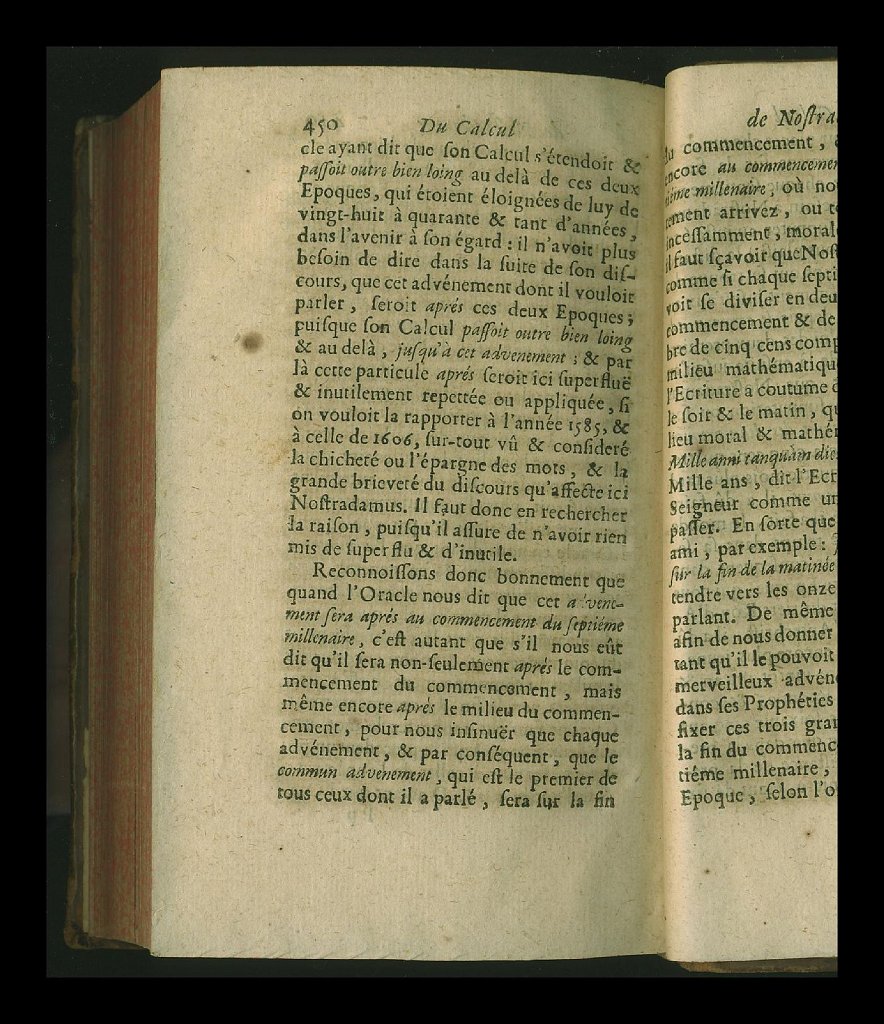 450 Du Calcul
cle ayant dit que ſon Calcul s'étendoit &
paſſoit outre bien loing au delà de ces deux
Epoques, qui étoient éloignées de luy de
vingt-huit à quarante & tant d'années,
dans l'avenir à ſon égard : il n'avoit plus
beſoin de dire dans la ſuite de ſon diſ-
cours, que cet advénement dont il vouloit
parler, ſeroit aprés ces deux Epoques;
puiſque ſon Calcul paſſoit outre bien loing
& au delà, juſqu'à cet advenement : & par
là cette particule aprés ſeroit ici ſuperfluë
& inutilement repettée ou appliquée, ſi
on vouloit la rapporter à l'année 1585, &
à celle de 1606, ſur-tout vû & conſideré
la chicheté ou l'épargne des mots, & la
grande brieveté du diſcours qu'affecte ici
Noſtradamus. Il faut donc en rechercher
la raiſon, puiſqu'il aſſure de n'avoir rien
mis de ſuperflu & d'inutile.
Reconnoiſſons donc bonnement que
quand l'Oracle nous dit que cet a vene-
ment ſera aprés au commencement du ſeptiéme
millenaire, c'eſt autant que s'il nous eût
dit qu'il ſera non-ſeulement aprés le com-
mencement du commencement, mais
même encore aprés le milieu du commen-
cement, pour nous inſinuër que chaque
advénement, & par conſéquent, que le
commun advenement, qui eſt le premier de
tous ceux dont il a parlé, ſera ſur la fin
de Noſtra
du commencement,
encore au commencemen
tiéme millenaire, où no
rement arrivez, ou
inceſſamment, moral
il faut ſçavoir que Noſ
comme ſi chaque ſepti
voit ſe diviſer en deu
commencement & de
bre de cinq cens comp
milieu mathématiqu
l'Ecriture a coutume
le ſoir & le matin, qu
lieu moral & mathé
Mille anni tanquàm die
Mille ans, dit l'Ecr
Seigneur comme un
paſſer. En ſorte que
ami, par exemple :
ſur la fin de la matinée
tendre vers les onze
parlant. De même
afin de nous donner
tant qu'il le pouvoit
merveilleux advén
dans ſes Prophéties
fixer ces trois gran
la fin du commenc
tiéme millenaire,
Epoque, ſelon l'o